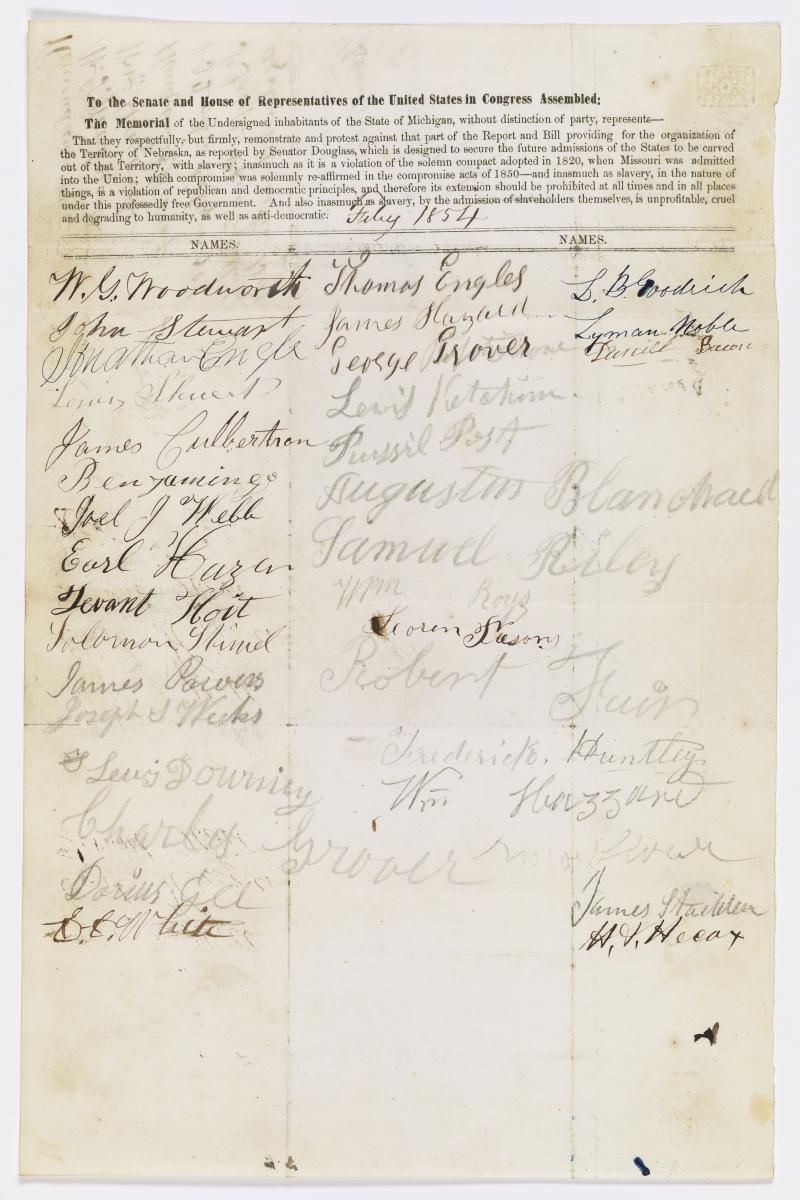 To the Senate and House of Representatives of the United States in Congress Assembled;
The Memorial of the Undersigned inhabitants of the State of Michigan, without distinction of party, represents—
That they respectfully, but firmly, remonstrate and protest against that part of the Report and Bill providing for the organization of
the Territory of Nebraska, as reported by Senator Douglass, which is designed to secure the future admissions of the States to be carved
out of that Territory, with slavery; inasmuch as it is a violation of the solemn compact adopted in 1820, when Missouri was admitted
into the Union; which compromise was solemnly re-affirmed in the compromise acts of 1850—and inasmuch as slavery, in the nature of
things, is a violation of republican and democratic principles, and therefore its extension should be prohibited at all times and in all places
under this professedly free Government. And also inasmuch as slavery, by the admission of slaveholders themselves, is unprofitable, cruel
and degrading to humanity, as well as anti-democratic. Feby 1854
NAMES. NAMES.
W. G. Woodworth
John Stewart
Jonathan Engle
Lewis
James Culbertson
Joel J Webb
Earl Hazen
Levant Hoit
Solomon
James Powers
Joseph S Weeks
Lewis Downing
Charles Grover
Darius
White
Thomas Engles
James Hazard
George Grover
Lewis Ketchum
Russil Post
Augustus Blanchard
Samuel Riley
Wm Roys
Loren
Robert Fair
Frederick Huntley
Wm Hazzard
L. B. Goodrich
Lyman Noble
Daniel Bacon
James
H. V. Hecox